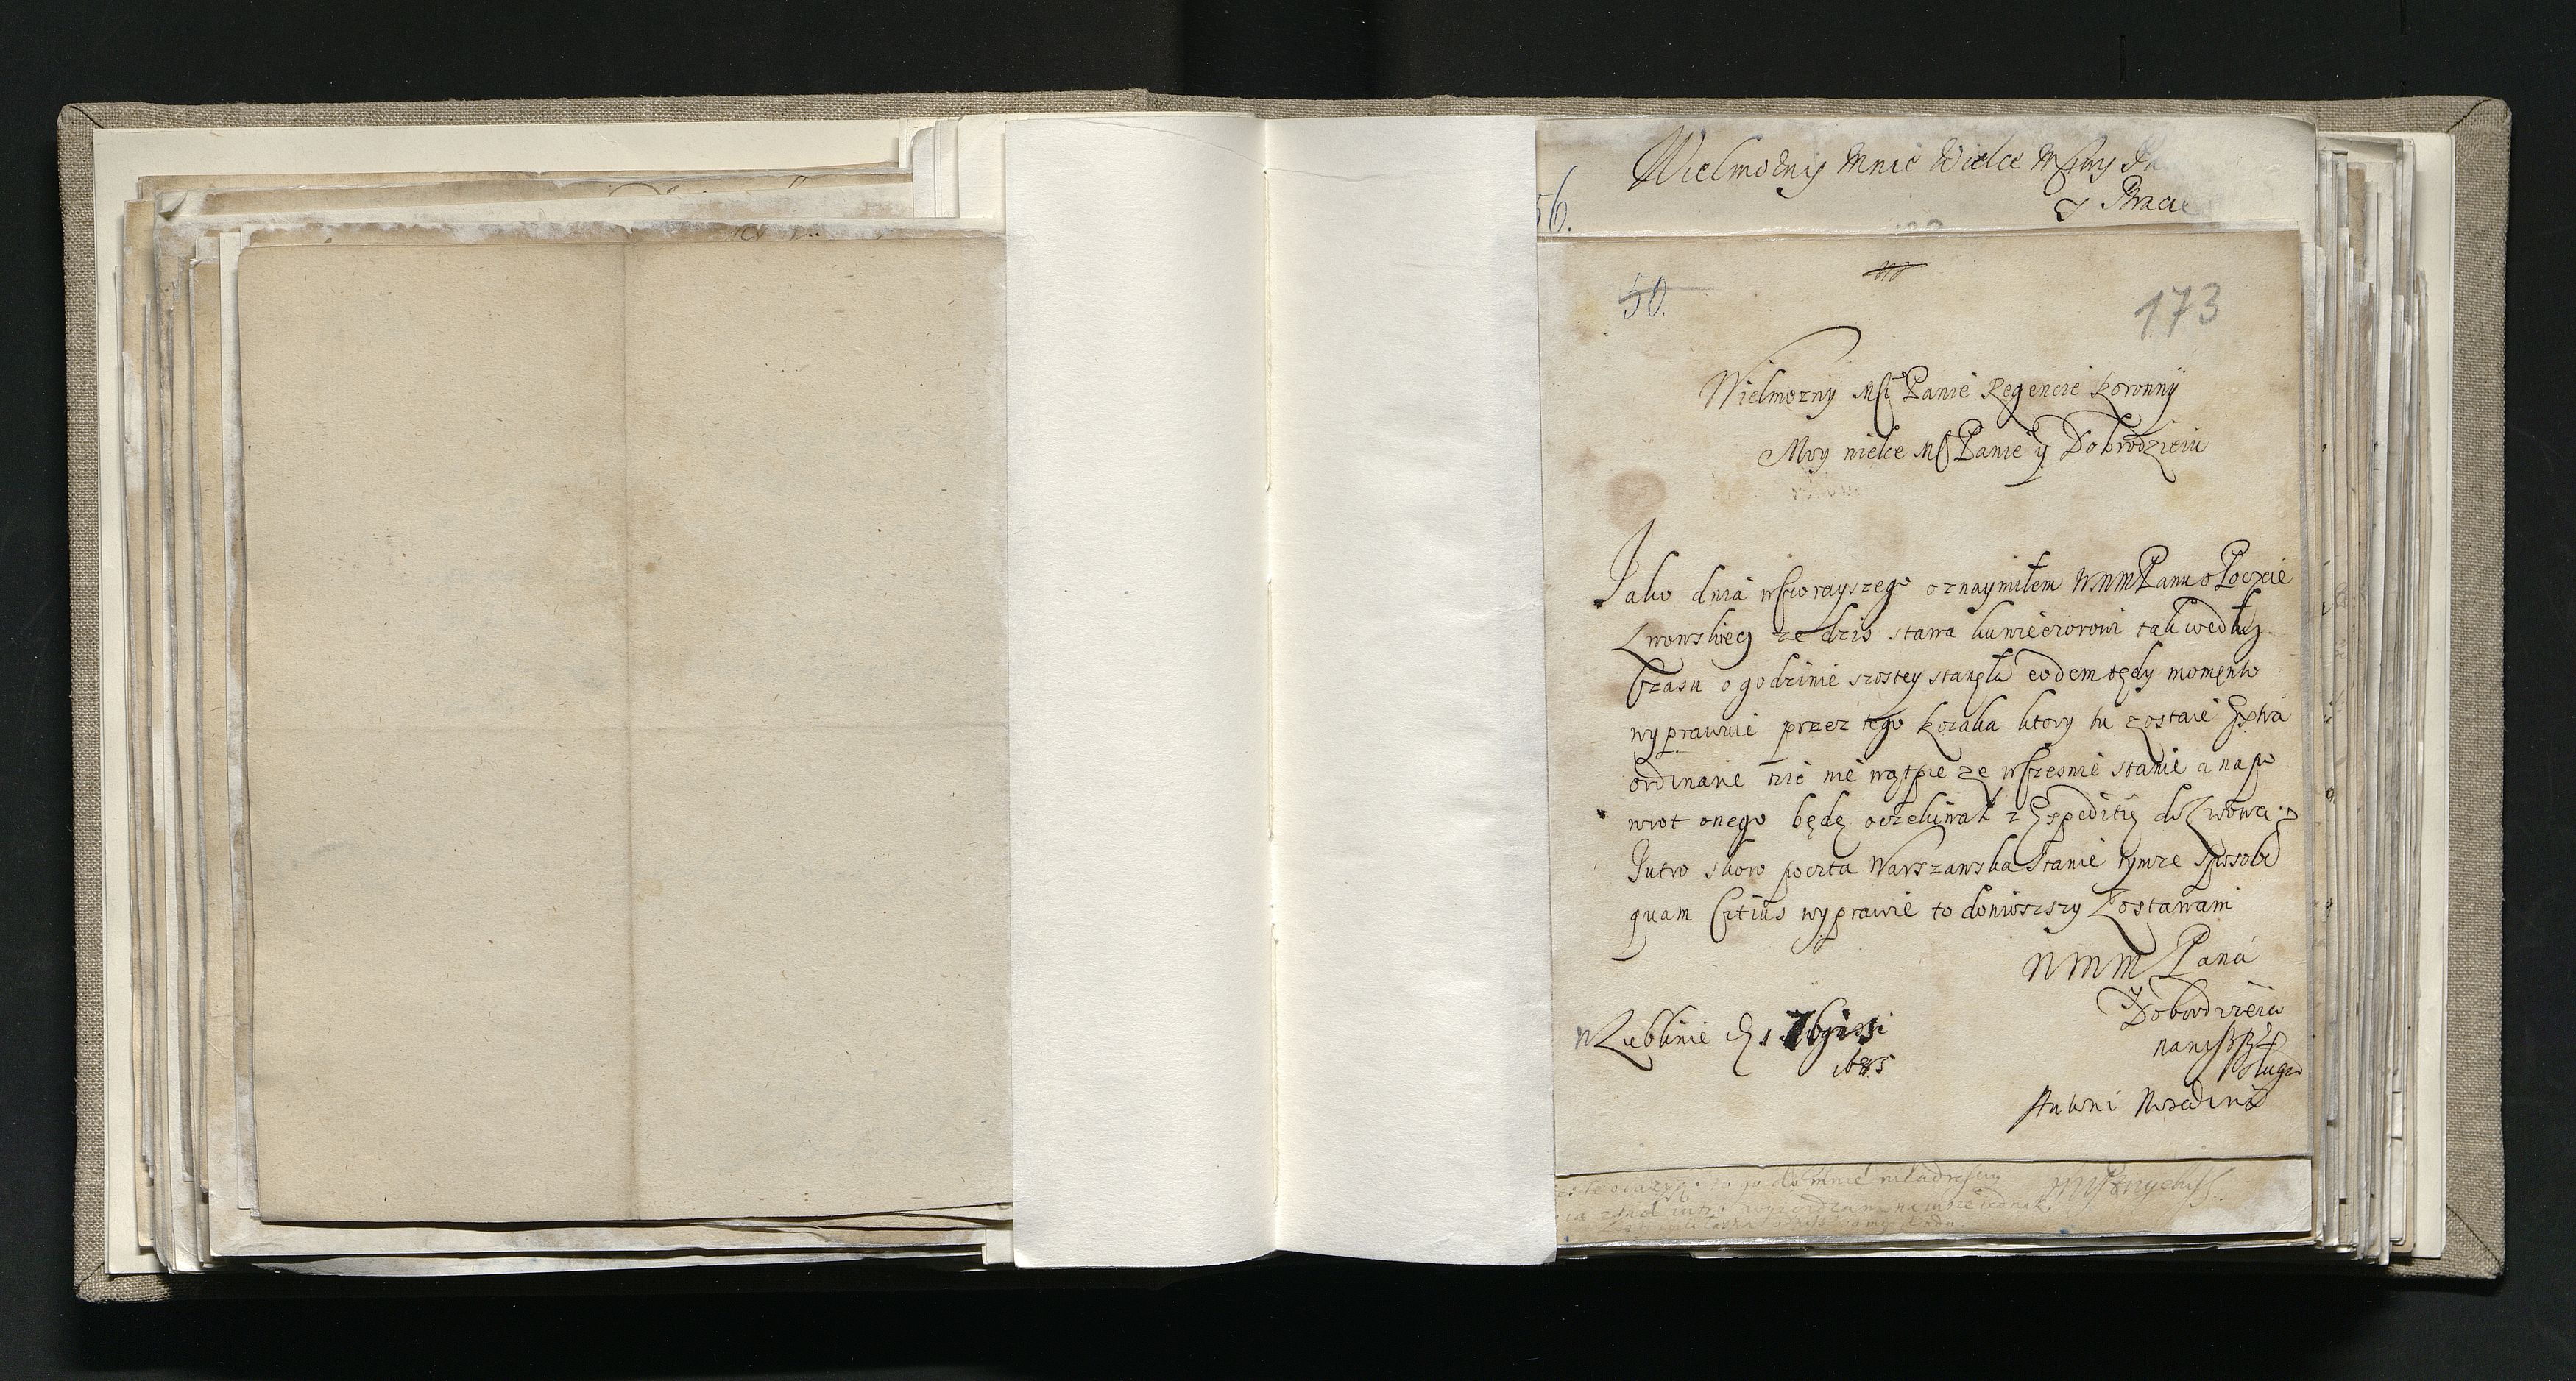 Wielmożny Mnie Wielce Mściwy
y Bracie
56.
50.
173
Wielmozny Mći Panie Regencie Koronny
Moy wielce Mś Panie y Dobrodzieiu
Jako dnia wczorayszego oznaymiłem WMM Panu o Poczcie
Lwowskiey ze dzis stawa ku wieczorowi tak według
Czasu o godzinie szostey stanęła eodem tędy momento
wyprawuie przez tego kozaka ktory tu zostaie Extra
ordinarie nic nie wątpie ze wczesnie stanie a na po
wrot onego będę oczekiwał z Expeditią do Lwowa
Jutro skoro poczta Warszawska stanie tymze sposobē
quam Citius wyprawie to doniozszy Zostawam
WMM Pana
Dobrodzieia
sługa
w Lublinie 1 7bris
1685